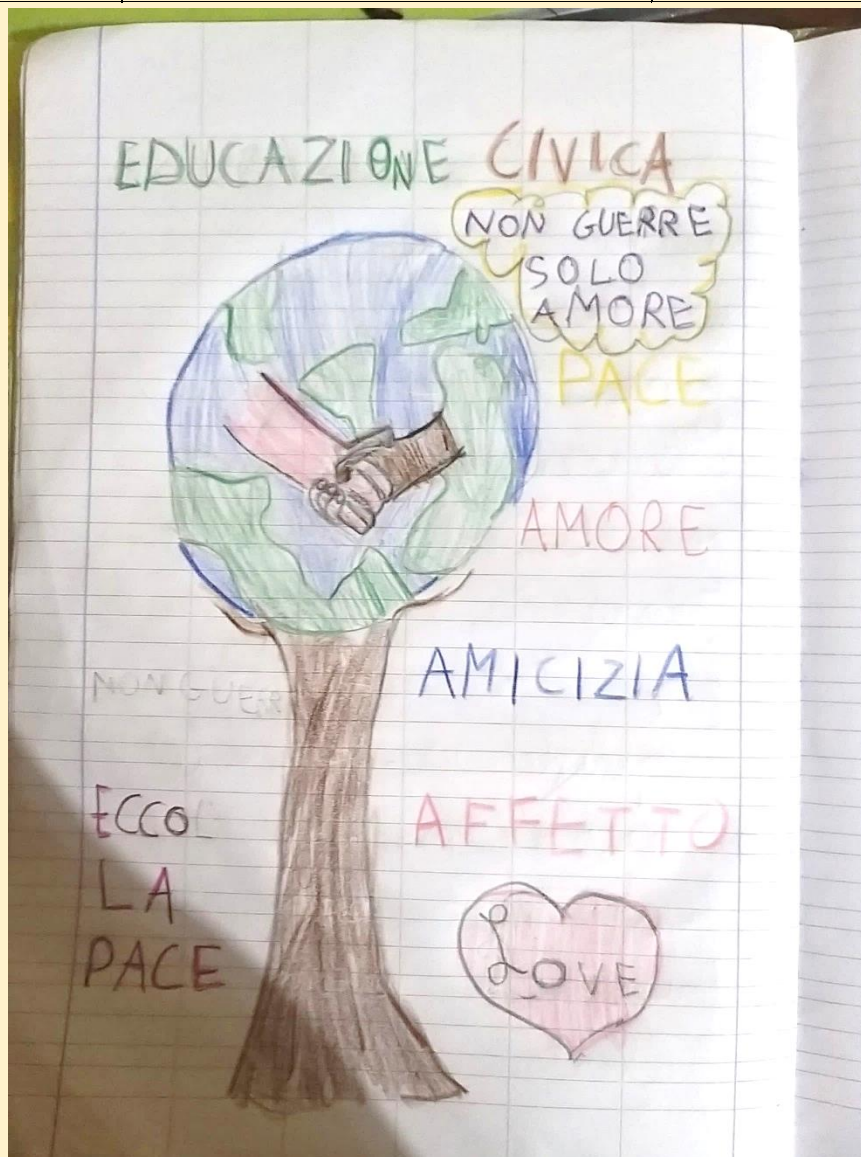 EDUCAZIONE CIVICA
NON GUERRE
SOLO
AMORE
PACE
AMORE
AMICIZIA
NON GUERR
ECCO
LA
PACE
AFFETTO
LOVE